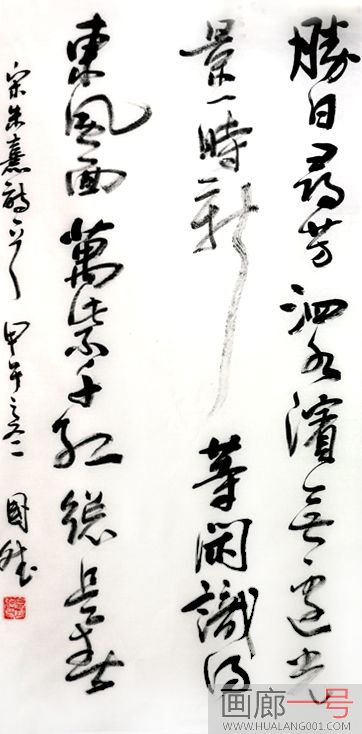 勝日尋芳泗水濱無邊光
景一時新等閑識得
東風面萬紫千紅總是春
宋朱熹詩一首甲午之冬國斌
画廊一号
WWW.HUALANG001.COM